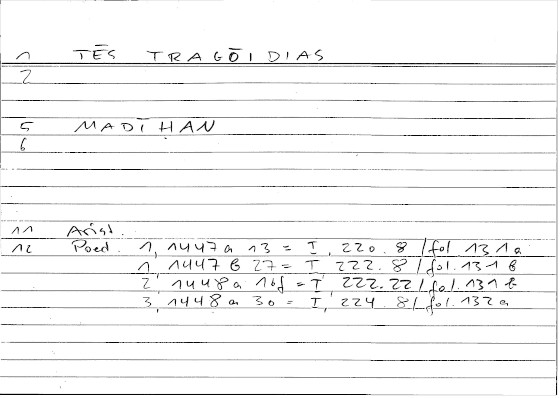 1 TĒS TRAGŌIDIAS
2
5 MADĪHAN
6
11 Arist.
12 Poet. 1, 1447 a 13 = I, 220.8 / fol 131 a
1, 1447 b 27 = I, 222.8 / fol. 131 b
2, 1448 a 16f = I, 222.22 / fol. 131 b
3, 1448 a 30 = I, 224.8 / fol. 132 a